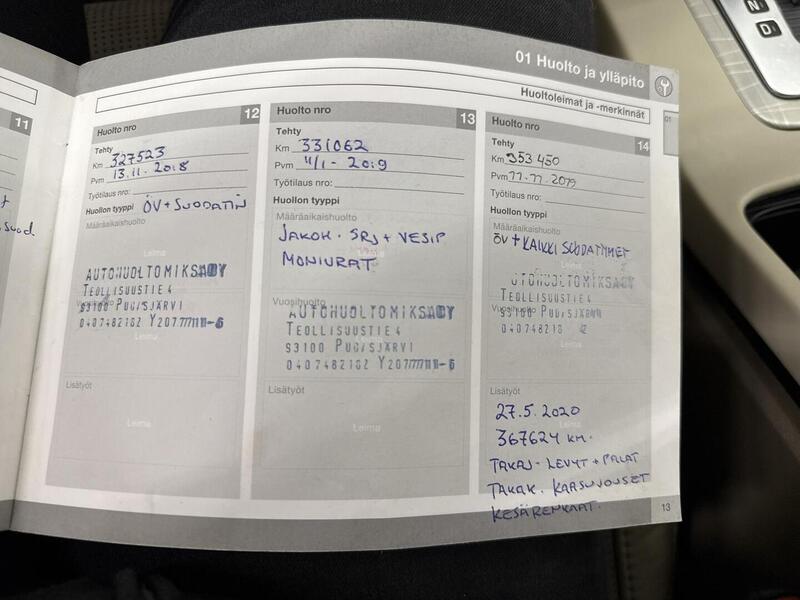 01 Huolto ja ylläpito
Huoltoleimat ja -merkinnät
01
11
suod
Huolto nro
12
Tehty
Km 327523
Pvm 13.11.2018
Työtilaus nro:
Huollon tyyppi ÖV + SUODATIN
Määräaikaishuolto
Leima
AUTOHUOLTOMIKSAOY
TEOLLISUUSTIE 4
93100 PUDASJÄRVI
Vuosihuolto
Leima
Lisätyöt
Leima
Huolto nro
13
Tehty
Km 331062
Pvm 4/1 - 2019
Työtilaus nro:
Huollon tyyppi
Määräaikaishuolto
JAKOH. SRJ + VESIP
MONIURAT
Leima
Vuosihuolto
AUTOHUOLTOMIKSAOY
TEOLLISUUSTIE 4
93100 PUDASJÄRVI
Lisätyöt
Leima
Huolto nro
14
Tehty
Km 353 450
Pvm 11.11.2019
Työtilaus nro:
Huollon tyyppi
Määräaikaishuolto
ÖV + KAIKKI SUODATTIMET
Leima
AUTOHUOLTOMIKSAOY
TEOLLISUUSTIE 4
Vuosihuolto
Lisätyöt
27.5.2020
367624 KM.
TAKAJ-LEVYT + PALAT
TAKAK. KAASUJOUSET
KESÄRENKAAT.
13
N
D